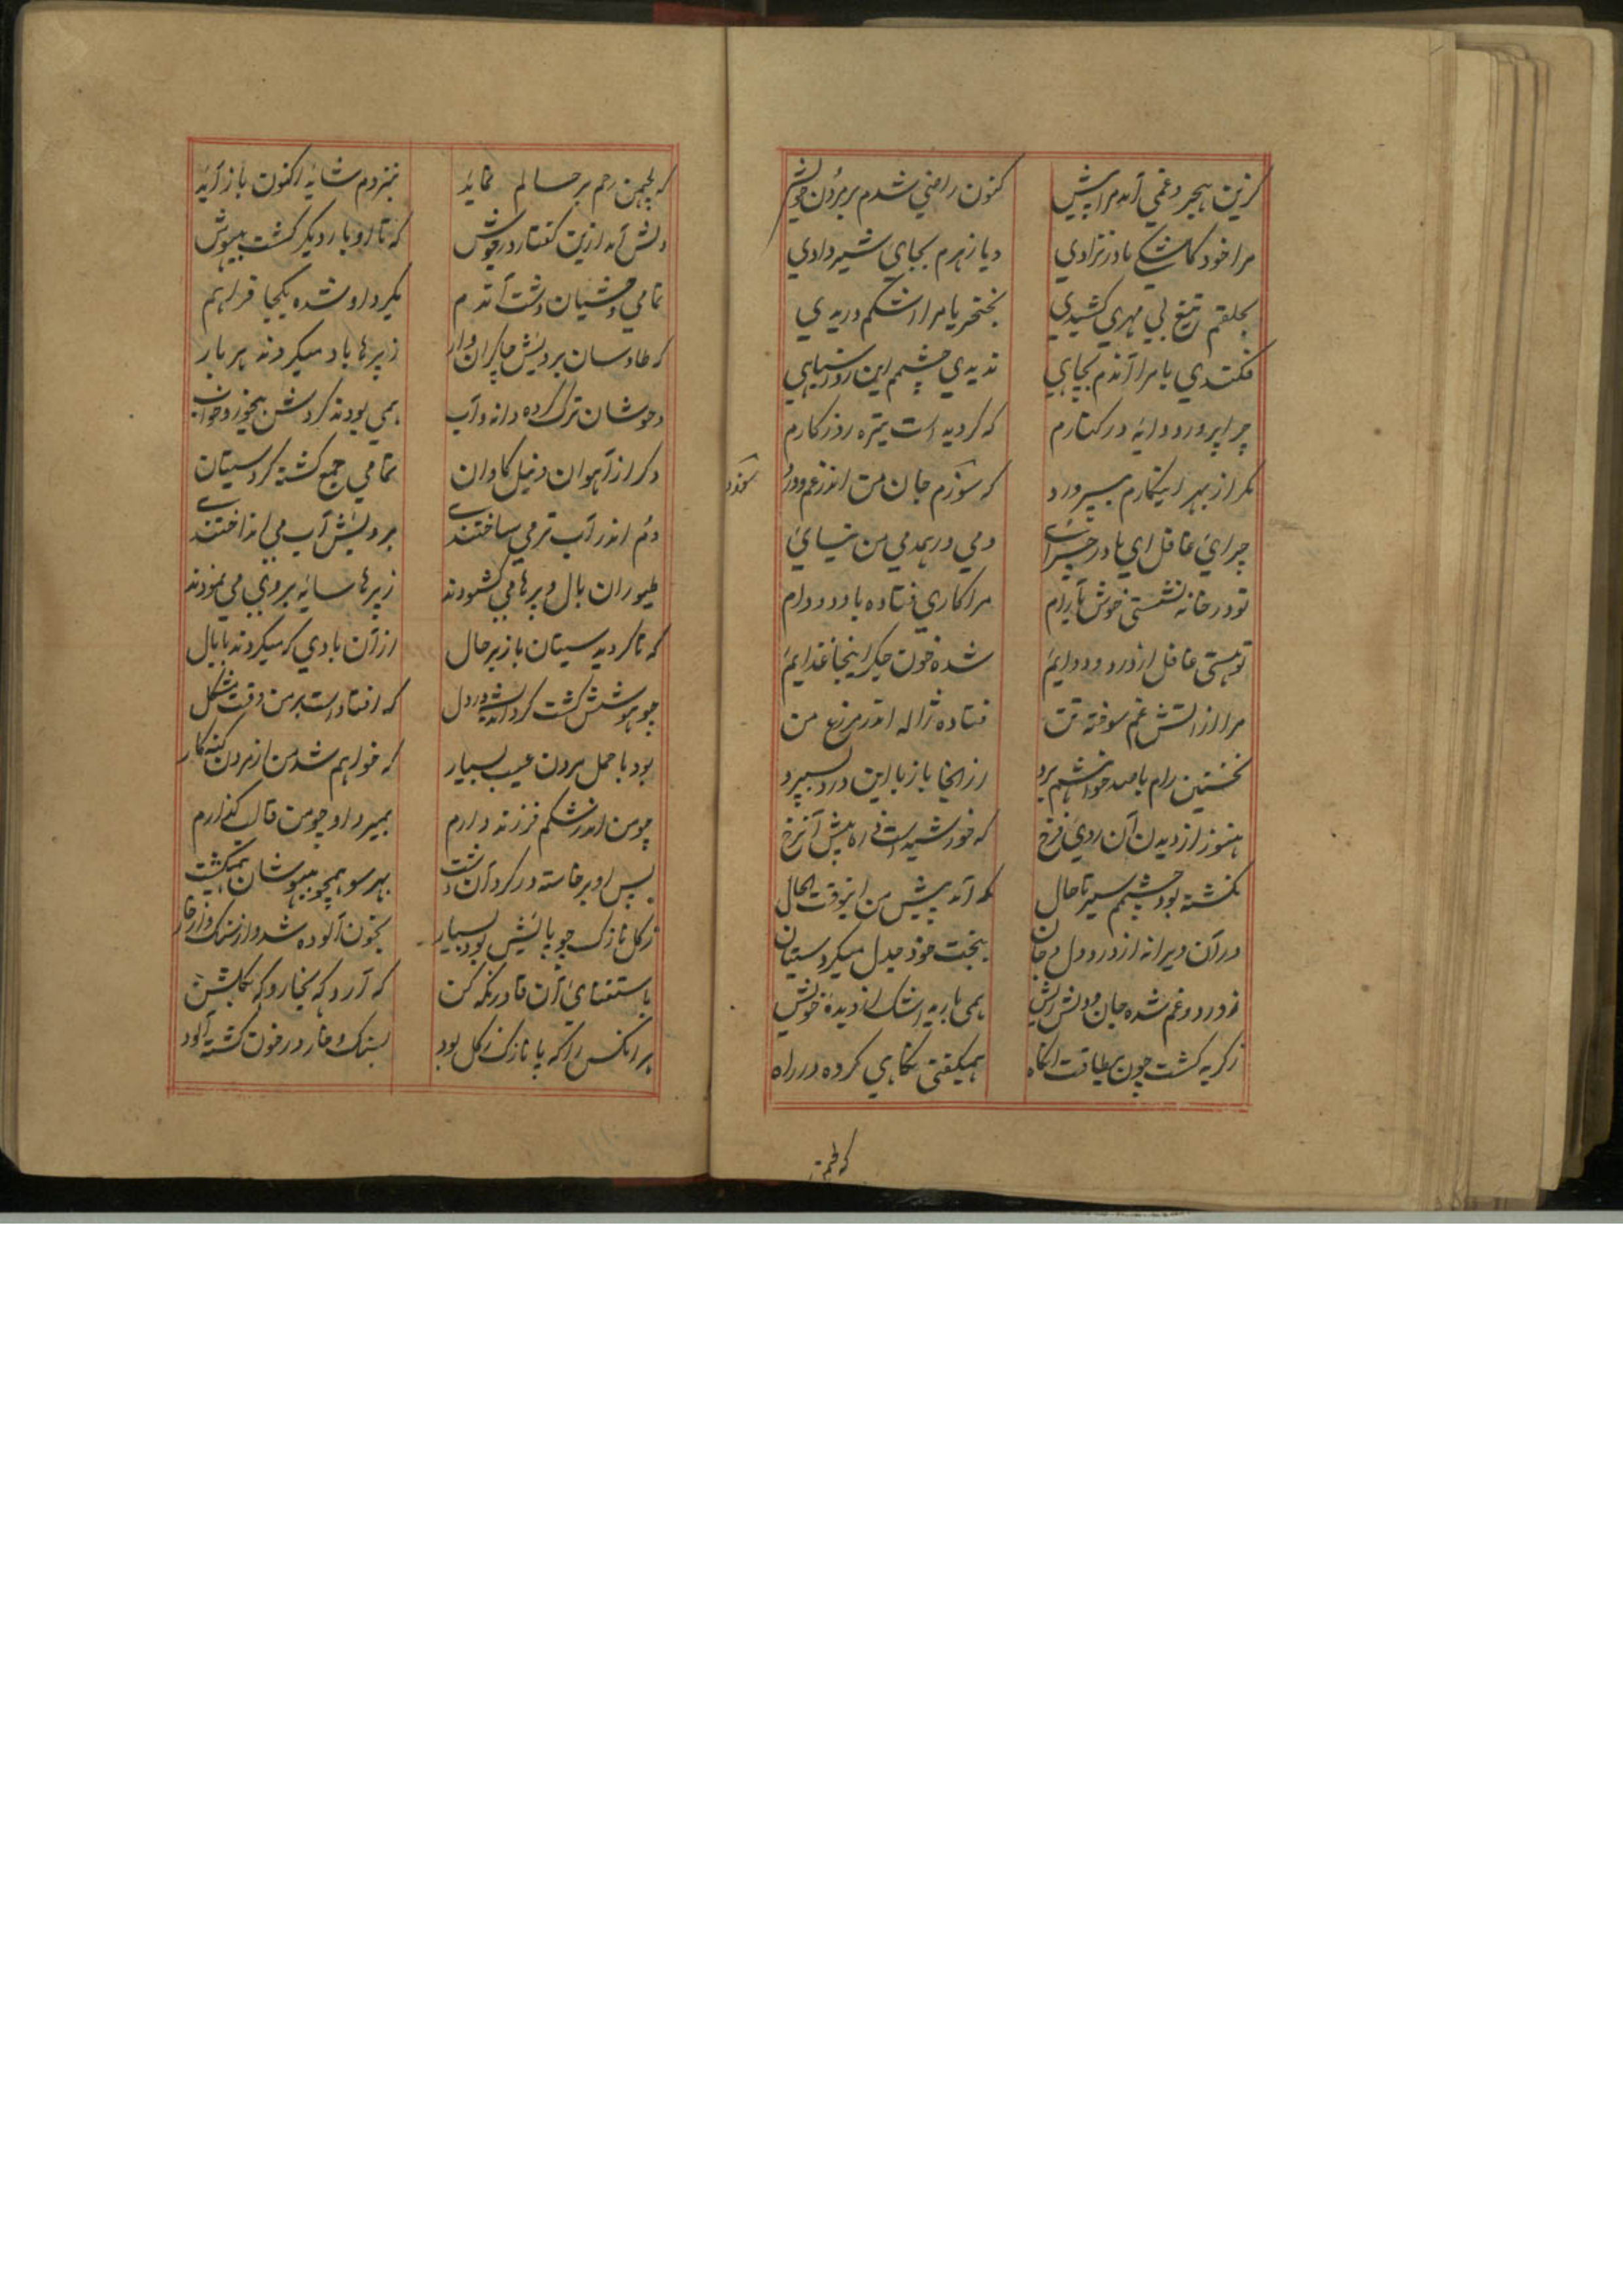 کزین هجر و غمی آمد مرا پیش کنون راضی شدم بر مردن خویش
مرا خود کاشکی مادر نزادی و یا زهرم بجای شیر دادی
بحلقم تیغ بی مهری کشیدی بخنجر یا مرا اشکم دریدی
فکندی یا مرا آندم بچاهی ندیدی چشمم این روز سیاهی
چرا پرورد دایه در کنارم که کردید است تیره روزکارم
مکر از بهر اینکارم بپرورد که سوزم جان من اندر غم و درد
چرای غافل ای مادر دمی در همدمی من نیائی
تو در خانه نشستی خوش بآرام مرا کاری فتاده با دد و دام
تو هستی غافل از درد و دوایم شده خون جکر اینجا غذایم
مرا از آتش غم سوخته تن فتاده ژاله اندر مزرع من
نخستین رام با صد خواهشم برد از اینجا باز با این درد بسپرد
هنوز از دیدن آن روی فرخ که خورشید است ره پیش آن رخ
نکشته بود چشمم سیر تا حال که آمد پیش من اینوقت الحال
در آن ویرانه از درد دل و جان ببخت خود جدل میکرد سیتان
ز درد و غم شده جان و دلش ریش همی بارید اشک از دیدهٔ خویش
ز کریه کشت چون بیطاقت آنکاه همیکفتی نکاهی کرده در راه
که لچمن
که لچمن رحم بر حالم نماید بنزدم شاید اکنون باز آید
دلش آمد ازین کفتار در جوش که تا او بار دیکر کشت بیهوش
تمامی وحشیان دشت آندم بکرد او شده یکجا فراهم
که طاوسان برویش چاکران وار ز پرها باد میکردند هر بار
وحوشان ترک کرده دانه و آب همی بودند کردش بیخور و خواب
دکر از آهوان و نیل کاوان تمامی جمع کشته کرد سیتان
دم اندر آب تر می ساختندی برویش آب می انداختندی
طیوران بال و پرها می کشودند ز پرها سایه بر وی می نمودند
که تا کردید سیتان باز بر حال از آن بادی که میکردند با بال
چو هوشش کشت کرد اندیشه در دل که افتاد است بر من وقت مشکل
بود با حمل مردن عیب بسیار که خواهم شد من از مردن کنه کار
چو من اندر شکم فرزند دارم بمیرد او چو من قالب کذارم
پس او برخاسته در کرد آن دشت بهر سو همچو بیهوشان همیکشت
ز کل نازک چو پایش بود بسیار بخون آلوده شد از سنک و از خار
باستغنای آن قادر نکه کن که آرد که بخار و که بکلشن
هر آنکس را که پا نازک ز کل بود بسنک و خار در خون کشته آلود